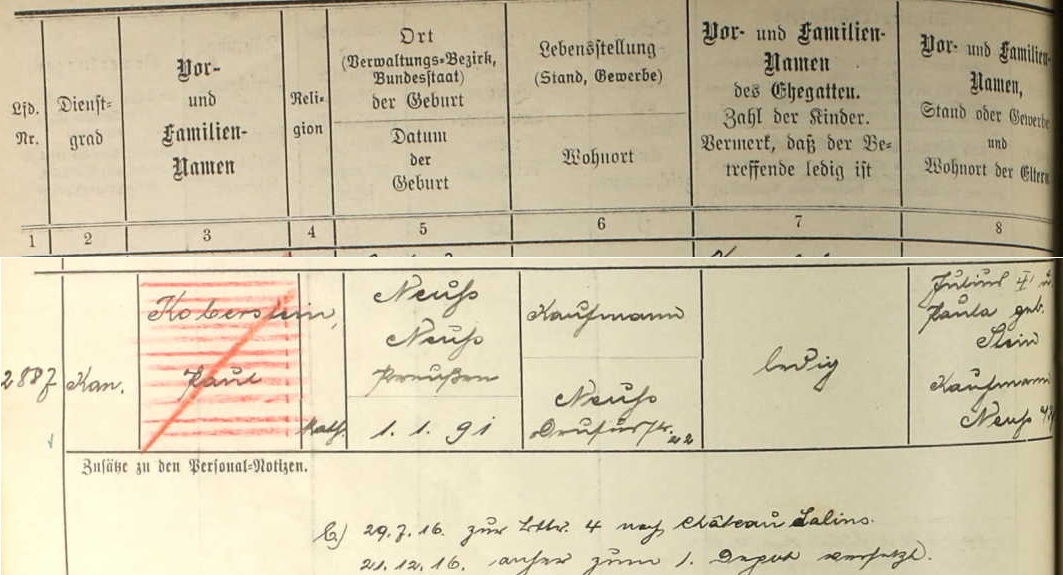 Lfd.
Nr.
Dienst=
grad
Vor-
und
Familien-
Namen
Reli=
gion
Ort
(Verwaltungs=Bezirk,
Bundesstaat)
der Geburt
Datum
der
Geburt
Lebensstellung
(Stand, Gewerbe)
Wohnort
Vor- und Familien-
Namen
des Ehegatten.
Zahl der Kinder.
Vermerk, daß der Be=
treffende ledig ist
Vor- und Familien-
Namen,
Stand oder Gewerbe
und
Wohnort der Eltern
1
2
3
4
5
6
7
8
2887
Kan.
Koberstein,
Paul
Kath.
Neuß
Neuß
Preußen
1. 1. 91
Kaufmann
Neuß
Drususstr.
22
ledig
Julius u.
Paula geb.
Stein
Kaufmann
Neuß
Zusätze zu den Personal=Notizen.
29.7.16. zur Bttr. 4 nach Château Salins.
21.12.16. anher zum 1. Depot versetzt.